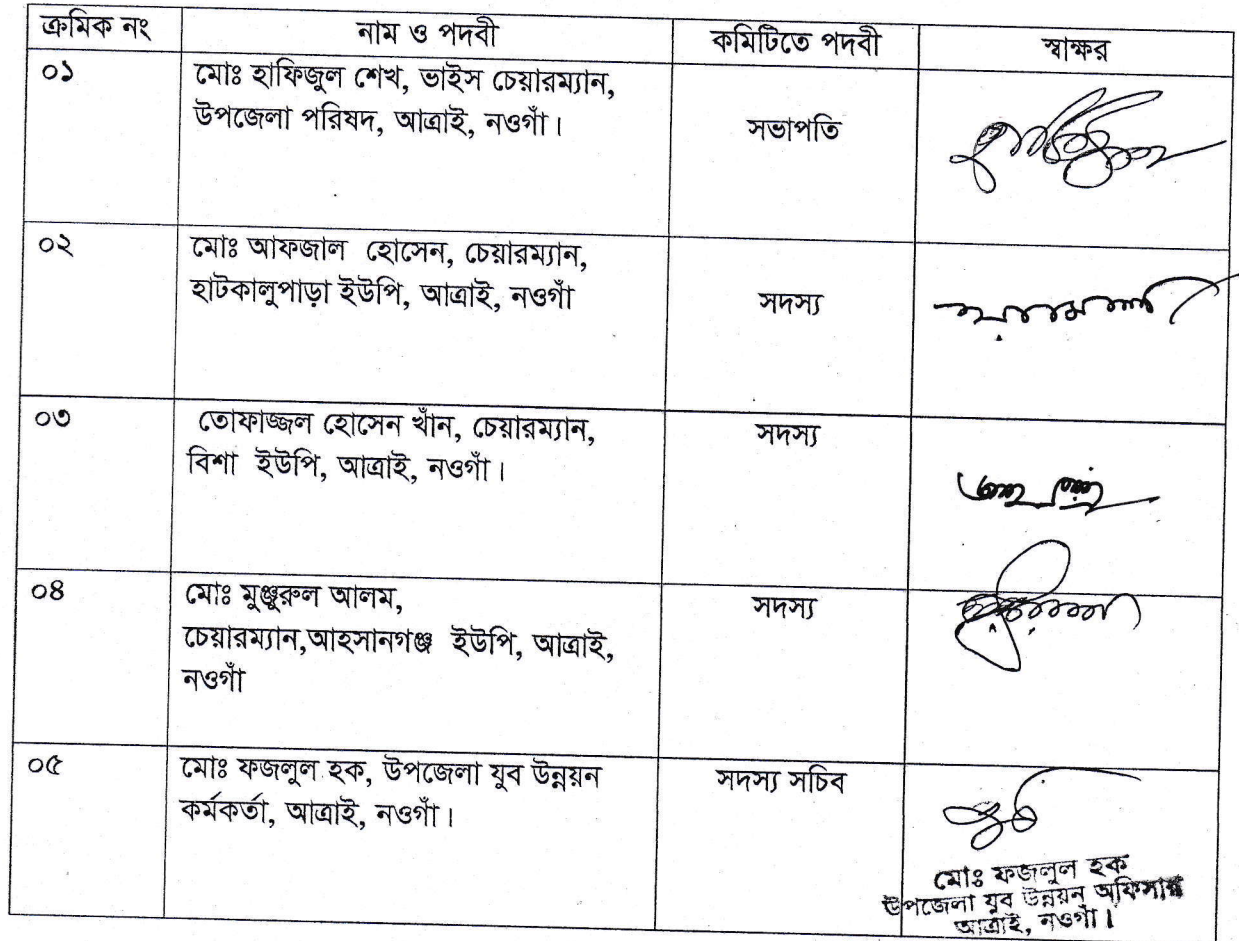 ক্রমিক নং নাম ও পদবী কমিটিতে পদবী স্বাক্ষর
০১ মোঃ হাফিজুল শেখ, ভাইস চেয়ারম্যান,
উপজেলা পরিষদ, আত্রাই, নওগাঁ। সভাপতি
০২ মোঃ আফজাল হোসেন, চেয়ারম্যান,
হাটকালুপাড়া ইউপি, আত্রাই, নওগাঁ সদস্য
০৩ তোফাজ্জল হোসেন খাঁন, চেয়ারম্যান, সদস্য
বিশা ইউপি, আত্রাই, নওগাঁ।
০৪ মোঃ মুঞ্জুরুল আলম, সদস্য
চেয়ারম্যান,আহসানগঞ্জ ইউপি, আত্রাই,
নওগাঁ
০৫ মোঃ ফজলুল হক, উপজেলা যুব উন্নয়ন সদস্য সচিব
কর্মকর্তা, আত্রাই, নওগাঁ।
মোঃ ফজলুল হক
উপজেলা যুব উন্নয়ন অফিসার
আত্রাই, নওগাঁ।